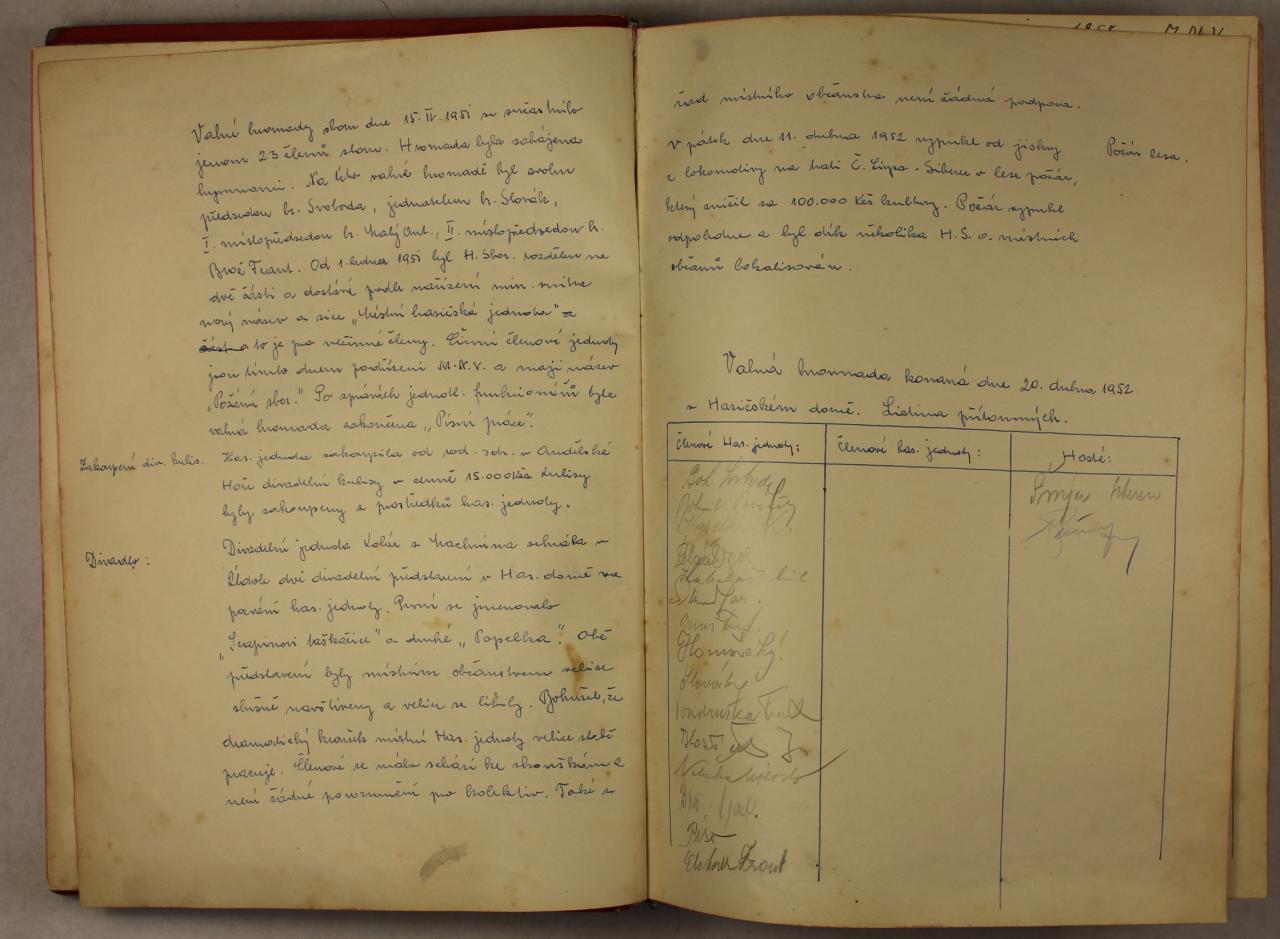 Valné hromady sboru dne 15.IV.1951 se súčastnilo
jenom 23 členů sboru. Hromada byla zahájena
hymnami. Na této valné hromadě byl zvolen
předsedou br. Svoboda, jednatelem br. Slovák,
I. místopředsedou br. Malý Ant., II. místopředsedou br.
Brož Frant. Od 1. ledna 1951 byl H. Sbor. rozdělen na
dvě části a dostává podle nařízení min. vnitra
nový název a sice „Místní hasičská jednota" a
část a to je pro nečinné členy. Činní členové jednoty
jsou tímto dnem podřízeni M.N.V. a mají název
„Požární sbor." Po zprávách jednotl. funkcionářů byla
valná hromada zakončena „Písní práce".
Zakoupení div. kulis.
Has. jednota zakoupila od rod. sdr. v Andělské
Hoře divadelní kulisy v ceně 15.000 Kčs Kulisy
byly zakoupeny z prostředků has. jednoty.
Divadlo:
Divadelní jednota Kolár z Machnína sehrála v
Údole dvě divadelní představení v Has. domě na
pozvání has. jednoty. První se jmenovalo
„ taškařice" a druhé „Popelka". Obě
představení byly místním občanstvem velice
slušně navštíveny a velice se líbily. Bohužel, že
dramatický kroužek místní Has. jednoty velice slabě
pracuje. Členové se málo schází ke zkouškám a
není žádné porozumění pro kolektiv. Také z
řad místního občanstva není žádná podpora.
V pátek dne 11. dubna 1952 vypukl od jiskry
Požár lesa.
z lokomotivy na trati Č. Lípa - Liberec v lese požár,
který zničil za 100.000 Kčs kultury. Požár vypukl
odpoledne a byl dík několika H.S. a místních
občanů lokalisován.
Valná hromada konaná dne 20. dubna 1952
v Hasičském domě. Listina přítomných.
Členové Has. jednoty:
Členové has. jednoty:
Hosté:
Slovák
Vondruška